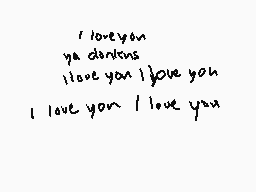 I love you
ya donkens
I love you I love you
I love you I love you